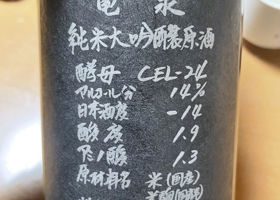 亀泉
純米大吟醸原酒
酵母 CEL-24
アルコール分 14%
日本酒度 -14
酸度 1.9
アミノ酸 1.3
原材料名 米(国産)